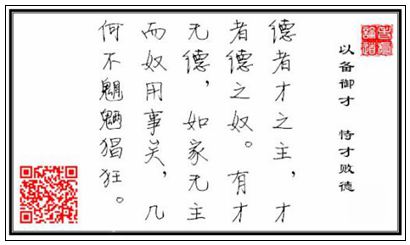 以备御才 恃才败德
德者才之主，才
者德之奴。有才
无德，如家无主
而奴用事矣，几
何不魍魉猖狂。